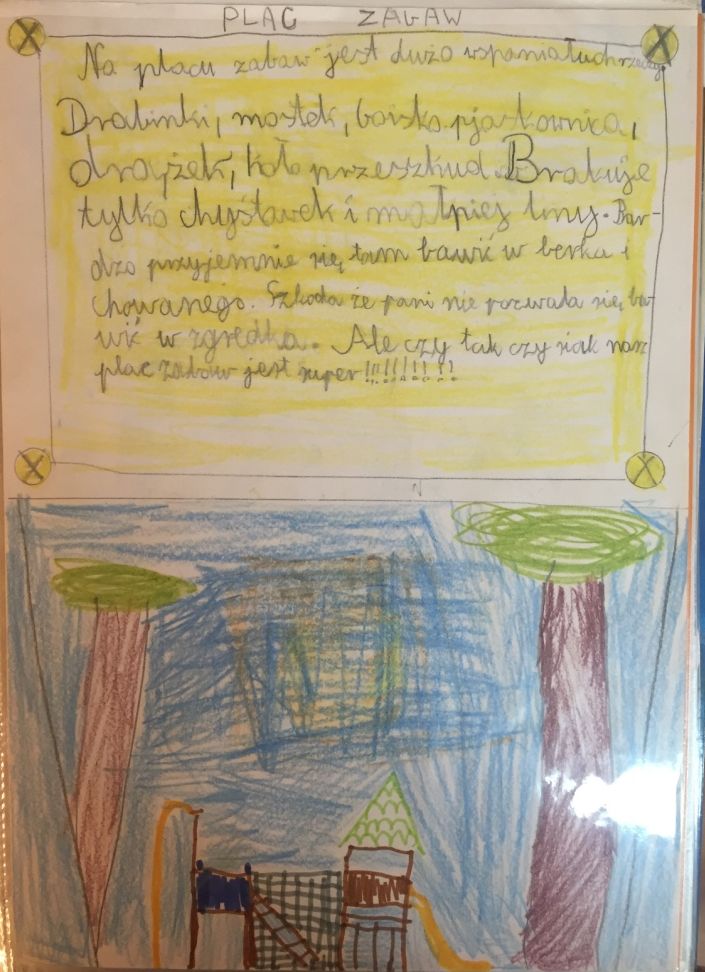 PLAC ZABAW
Na placu zabaw jest dużo wspaniałuch rzeczy.
Drabinki, mostek, boisko pjaskownica,
drążek, koło przeszkud. Brakuje
tylko chyśtawek i małpiej liny. Bar-
dzo przyjemnie się tam bawić w berka i
chowanego. Szkoda że pani nie pozwala się ba-
wić w zgredka. Ale czy tak czy siak nasz
plac zabaw jest super!!!!!!!!